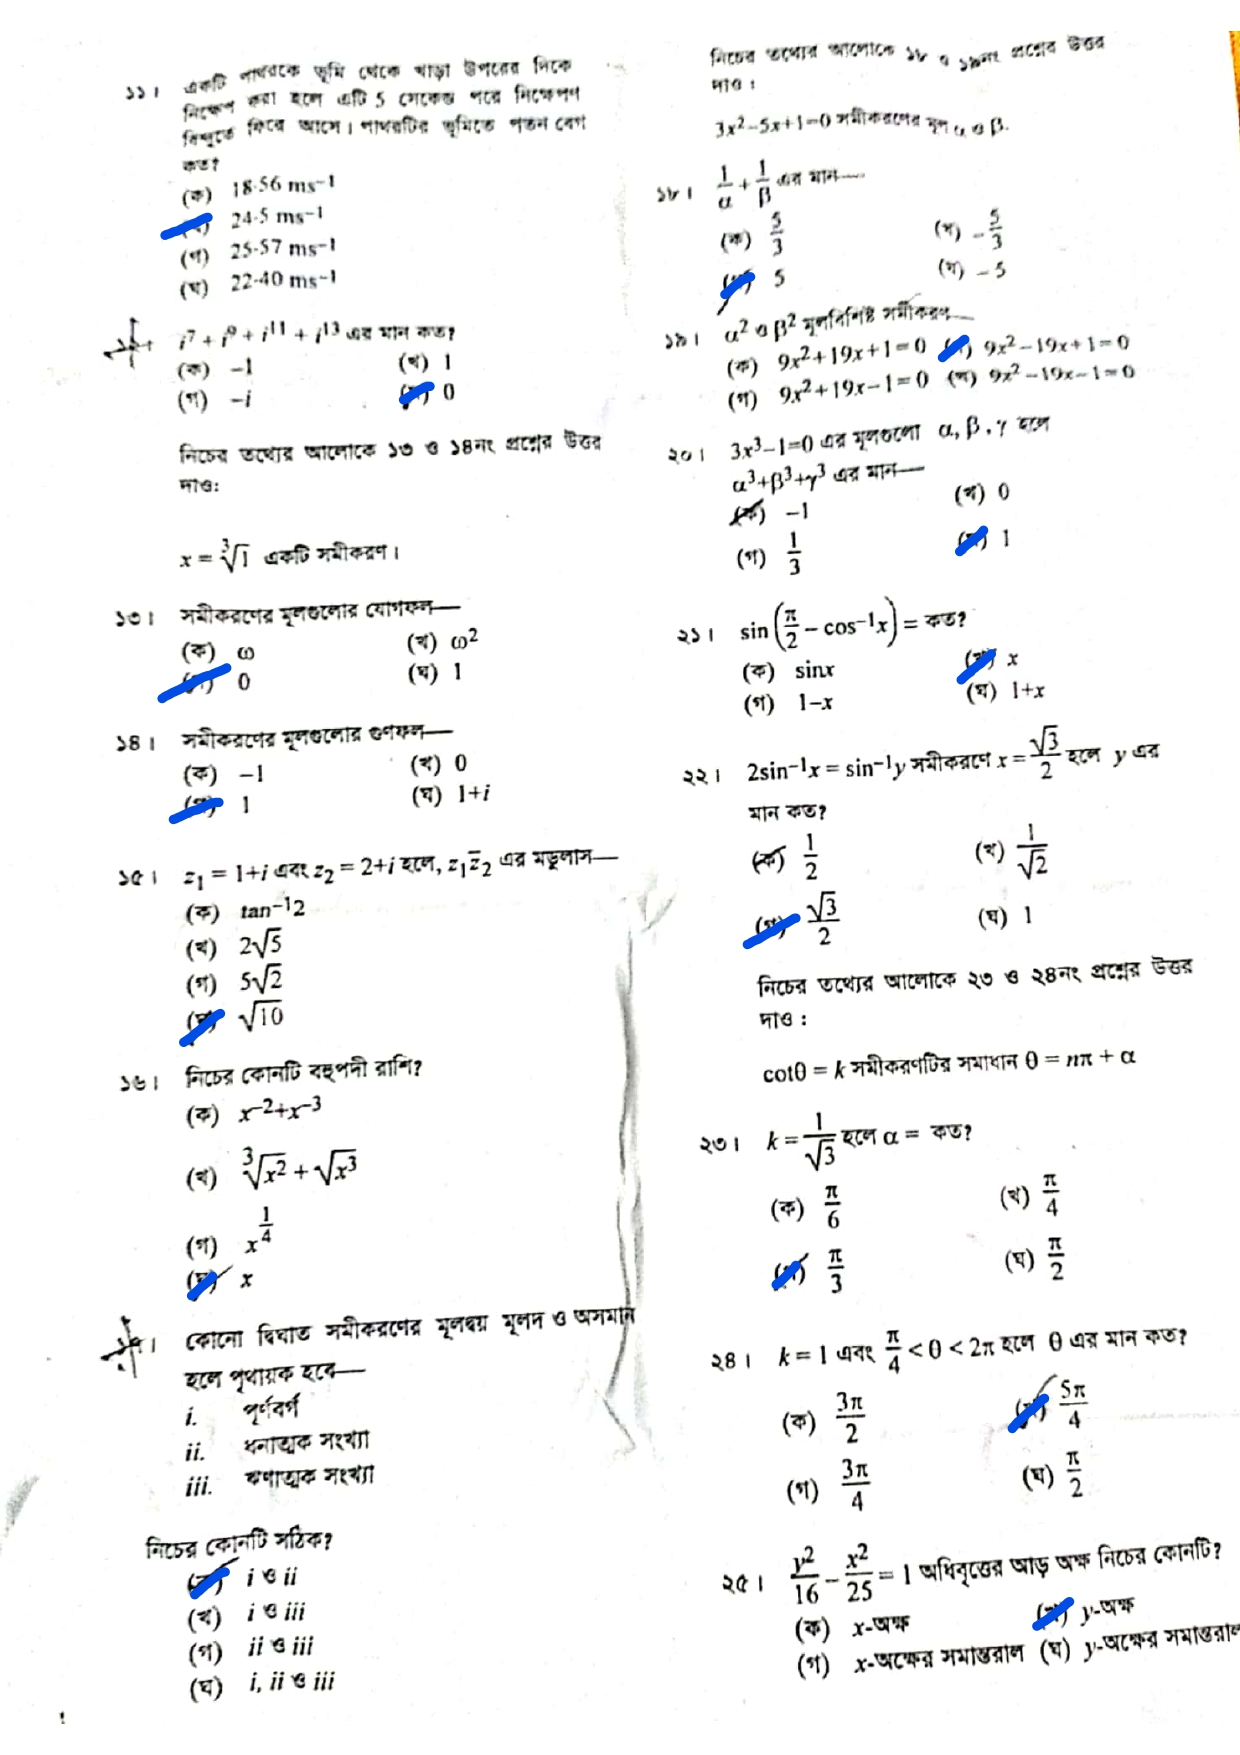 ১১। একটি পাথরকে ভূমি থেকে খাড়া উপরের দিকে
নিক্ষেপ করা হলে এটি 5 সেকেন্ড পরে নিক্ষেপণ
বিন্দুতে ফিরে আসে। পাথরটির ভূমিতে পতন বেগ
কত?
(ক) 18·56 ms⁻¹
24·5 ms⁻¹
(গ) 25·57 ms⁻¹
(ঘ) 22·40 ms⁻¹
i⁷ + i⁹ + i¹¹ + i¹³ এর মান কত?
(ক) –1 (খ) 1
(গ) –i (ঘ) 0
নিচের তথ্যের আলোকে ১৩ ও ১৪নং প্রশ্নের উত্তর
দাও:
x = ∛1 একটি সমীকরণ।
১৩। সমীকরণের মূলগুলোর যোগফল—
(ক) ω (খ) ω²
(গ) 0 (ঘ) 1
১৪। সমীকরণের মূলগুলোর গুণফল—
(ক) –1 (খ) 0
(গ) 1 (ঘ) 1+i
১৫। z₁ = 1+i এবং z₂ = 2+i হলে, z₁z̄₂ এর মডুলাস—
(ক) tan⁻¹2
(খ) 2√5
(গ) 5√2
(ঘ) √10
১৬। নিচের কোনটি বহুপদী রাশি?
(ক) x⁻²+x⁻³
(খ) ∛x² + √x³
(গ) x^(1/4)
(ঘ) x
১৭। কোনো দ্বিঘাত সমীকরণের মূলদ্বয় মূলদ ও অসমান
হলে পৃথায়ক হবে—
i. পূর্ণবর্গ
ii. ধনাত্মক সংখ্যা
iii. ঋণাত্মক সংখ্যা
নিচের কোনটি সঠিক?
(ক) i ও ii
(খ) i ও iii
(গ) ii ও iii
(ঘ) i, ii ও iii
নিচের তথ্যের আলোকে ১৮ ও ১৯নং প্রশ্নের উত্তর
দাও :
3x²–5x+1=0 সমীকরণের মূল α ও β.
১৮। 1/α + 1/β এর মান—
(ক) 5/3 (খ) –5/3
(গ) 5 (ঘ) –5
১৯। α² ও β² মূলবিশিষ্ট সমীকরণ—
(ক) 9x²+19x+1=0 (খ) 9x²–19x+1=0
(গ) 9x²+19x–1=0 (ঘ) 9x²–19x–1=0
২০। 3x³–1=0 এর মূলগুলো α, β, γ হলে
α³+β³+γ³ এর মান—
(ক) –1 (খ) 0
(গ) 1/3 (ঘ) 1
২১। sin(π/2 – cos⁻¹x) = কত?
(ক) sinx (খ) x
(গ) 1–x (ঘ) 1+x
২২। 2sin⁻¹x = sin⁻¹y সমীকরণে x = √3/2 হলে y এর
মান কত?
(ক) 1/2 (খ) 1/√2
(গ) √3/2 (ঘ) 1
নিচের তথ্যের আলোকে ২৩ ও ২৪নং প্রশ্নের উত্তর
দাও :
cotθ = k সমীকরণটির সমাধান θ = nπ + α
২৩। k = 1/√3 হলে α = কত?
(ক) π/6 (খ) π/4
(গ) π/3 (ঘ) π/2
২৪। k = 1 এবং π/4 < θ < 2π হলে θ এর মান কত?
(ক) 3π/2 (খ) 5π/4
(গ) 3π/4 (ঘ) π/2
২৫। y²/16 – x²/25 = 1 অধিবৃত্তের আড় অক্ষ নিচের কোনটি?
(ক) x-অক্ষ (খ) y-অক্ষ
(গ) x-অক্ষের সমান্তরাল (ঘ) y-অক্ষের সমান্তরাল